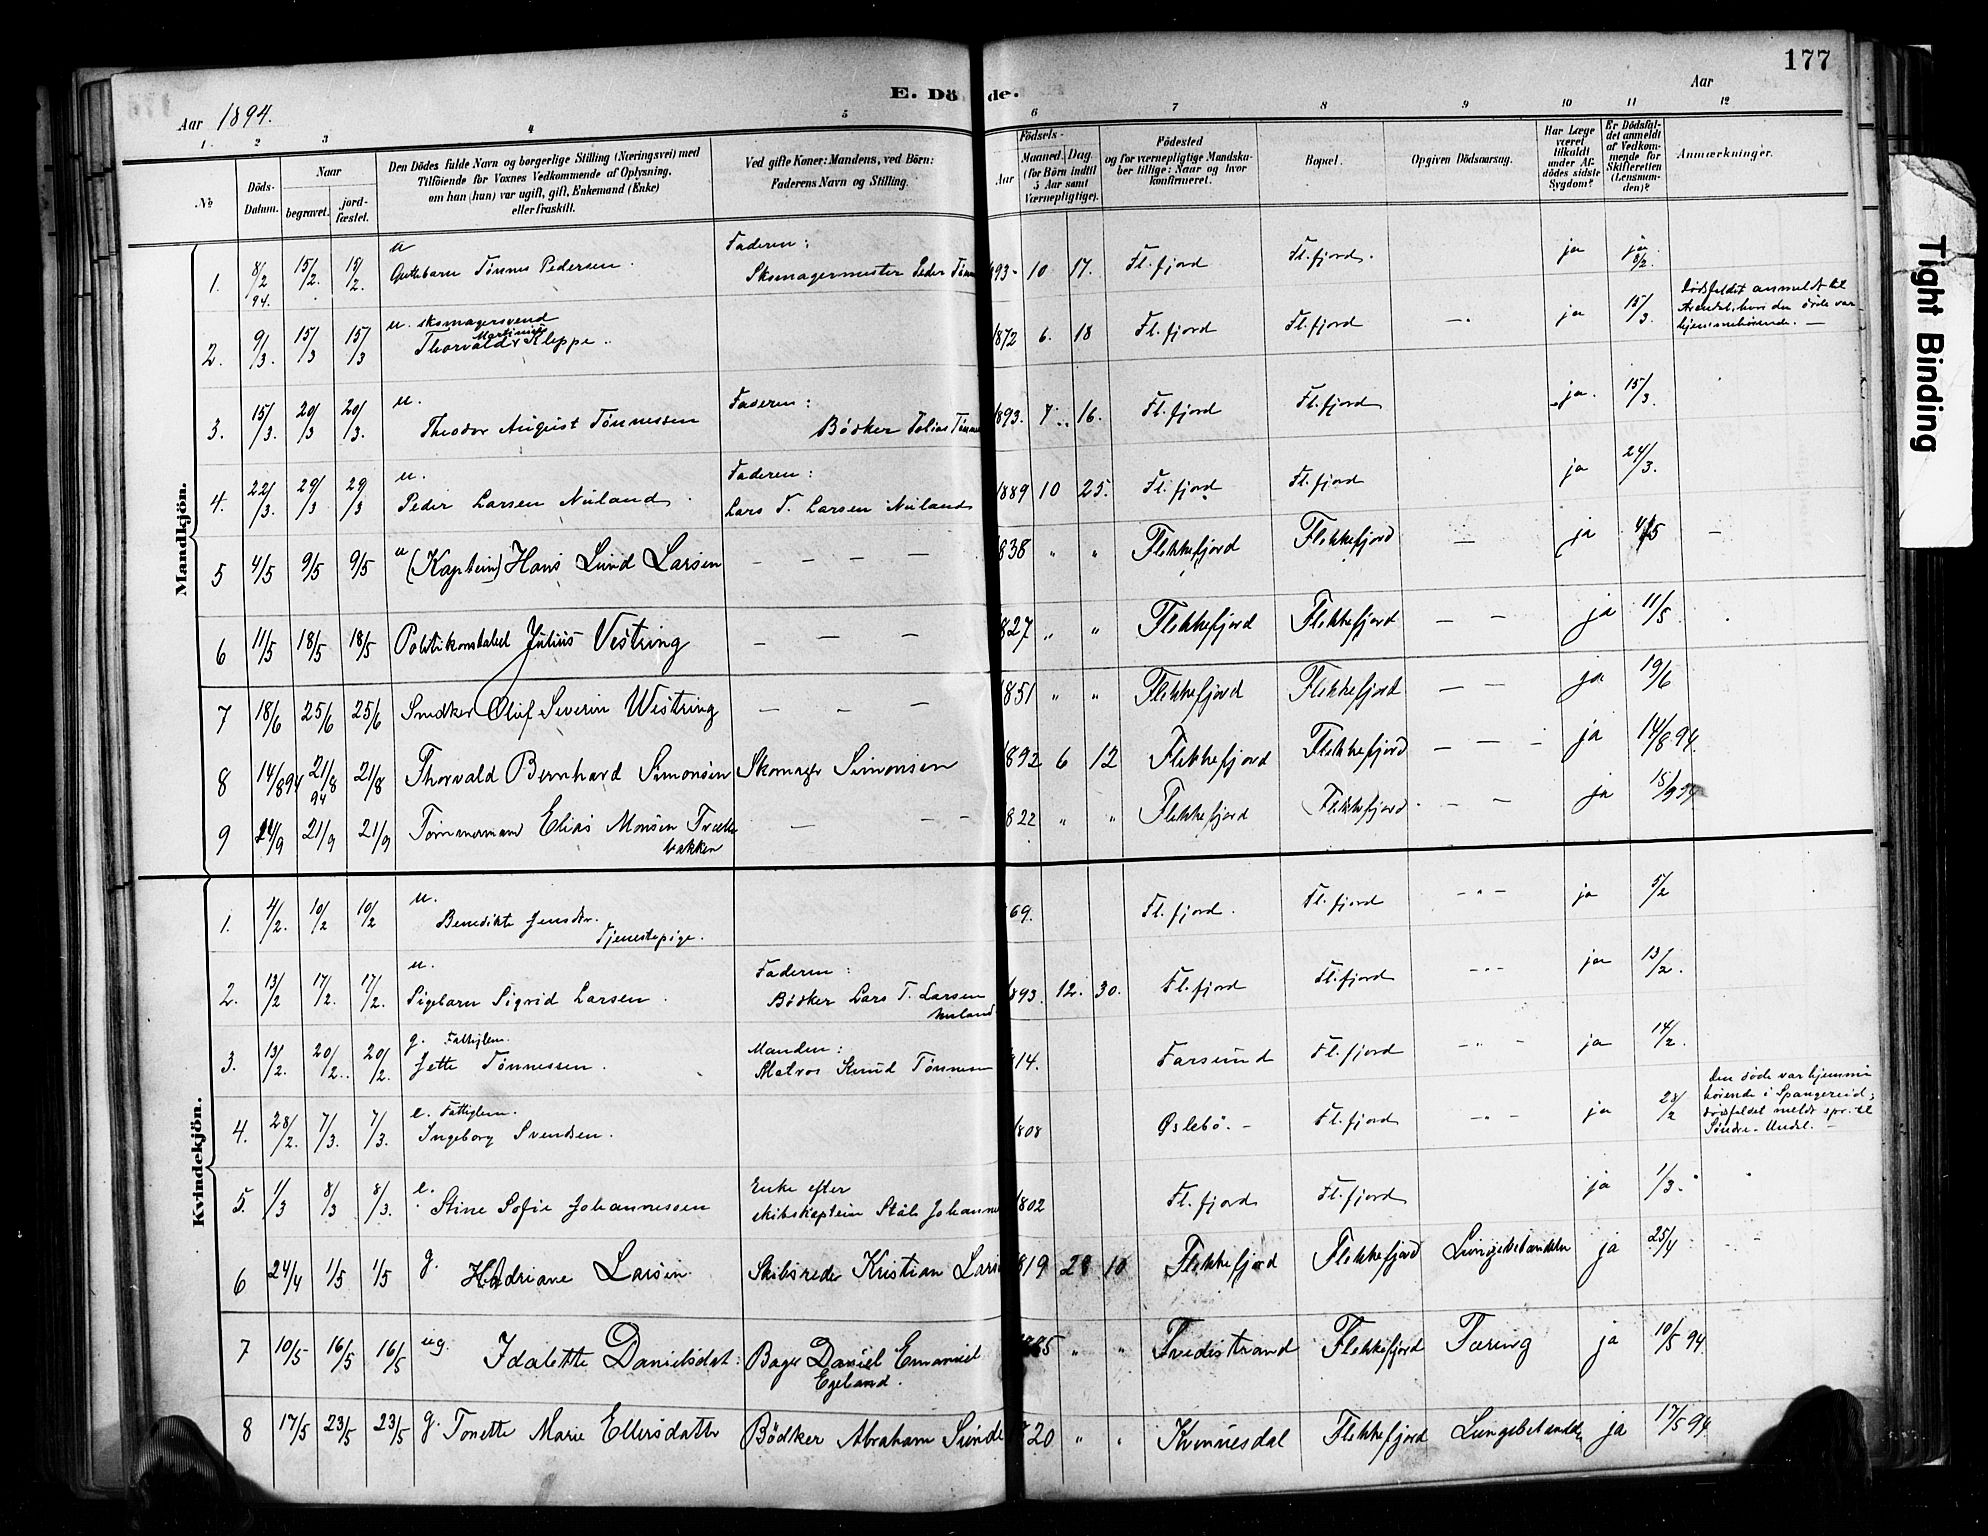 177
E. Dö de.
Aar 1894.
Aar
1. 2 3 4 5 6 7 8 9 10 11 12
No
Döds-Datum.
Naar
begravet.
jord-fæstet.
Den Dödes fulde Navn og borgerlige Stilling (Næringsvei) med
Tilföiende for Voxnes Vedkommende af Oplysning,
om han (hun) var ugift, gift, Enkemand (Enke)
eller fraskilt.
Ved gifte Koner: Mandens, ved Börn:
Faderens Navn og Stilling.
Födsels-
Aar
Maaned. Dag.
(for Börn indtil
5 Aar samt
Værnepligtige).
Födested
og for værnepligtige Mandska-
ber tillige: Naar og hvor
konfirmeret.
Bopæl.
Opgiven Dödsaarsag.
Har Læge
været
tilkaldt
under Af-
dödes sidste
Sygdom?
Er Dödsfal-
det anmeldt
af Vedkom-
mende for
Skifteretten
(Lensman-
den)?
Anmærkninger.
Mandkjön.
1. 8/2 94. 15/2. 15/2 u Guttebarn Tönnes Pedersen. Faderen: Skomagermester Peder 93- 10 17. Fl.fjord Fl.fjord. ja ja 8/2.
2. 9/3. 15/3 15/3 u. skomagersvend Thorvald Martinius Kleppe.. 1872 6. 18 Fl.fjord Fl.fjord — " ja 15/3. Dödsfaldet anmeldt til Arendal, hvor den döde var hjemmehörende. —
3. 15/3. 20/3 20/3. u. Theodor August Tönnessen Faderen: Bödker 1893. 7 16. Fl.fjord Fl.fjord ja. 15/3.
4. 22/3. 29/3 29/3 u. Peder Larsen Nuland. Faderen: Lars T. Larsen Nuland 1889 10 25. Fl.fjord Fl.fjord ja 24/3.
5 4/5 9/5 9/5 u (Kaptein) Hans Lund Larsen — — — 838 " " Flekkefjord Flekkefjord — ja 4/5 —
6 11/5 18/5 18/5 Politikonstabel Julius Vestring — — — 827 " " Flekkefjord Flekkefjord — — ja 11/5
7 18/6 25/6 25/6 Snedker Oluf Severin Westring — — — 851 " " Flekkefjord Flekkefjord — — ja 19/6
8 14/8 94 21/8 94 21/8 Thorvald Bernhard Simonsen Skomager Simonsen 892 6 12 Flekkefjord Flekkefjord — — — ja 14/8 94.
9 21/9 21/9 Tömmermand Elias Monsen bakken — — — 822 " " Flekkefjord Flekkefjord. — — ja 15/9 94
Kvindekjön.
1. 4/2. 10/2 10/2 u. Benedikte Jensdtr. Tjenestepige. 69. Fl.fjord. Fl.fjord — " — ja 5/2
2. 13/2 17/2. 17/2. u. Pigebarn Sigrid Larsen. Faderen: Bödker Lars T. Larsen Nuland. 893. 12. 30. Fl.fjord Fl.fjord — " — ja 13/2.
3. 13/2. 20/2. 20/2. g. Fattiglem. Jette Tönnessen. Manden: Matros Knud Tönnesen 814. Farsund Fl.fjord — " — ja 14/2.
4. 28/2. 7/3. 7/3. e. Fattiglem. Ingeborg Svendsen. 1808 Öslebö. — Fl.fjord — " — ja 28/2 Den döde var hjemme hörende i Spangereid; dödsfaldet meldt spr. til Söndre-Undal. —
5. 1/3 8/3 8/3. e. Stine Sofie Johannessen Enke efter skibskaptein Ståle 1802 Fl.fjord Fl.fjord ja 1/3.
6 24/4 1/5 1/5 g. Hadriane Larsen Skibsreder Kristian 819 28 10 Flekkefjord Flekkefjord Lungebetændelse ja 25/4
7 10/5 16/5 16/5 ug. Idalette Danielsdat: Bager Daniel Emanuel Egeland. 885 " " Tvedestrand Flekkefjord Tæring ja 10/5 94
8 17/5 23/5 23/5 g. Tonette Marie Ellersdatter Bödker Abraham Sunde 20 " " Kvinnesdal Flekkefjord Lungebetændelse ja 17/5 94
Tight Binding